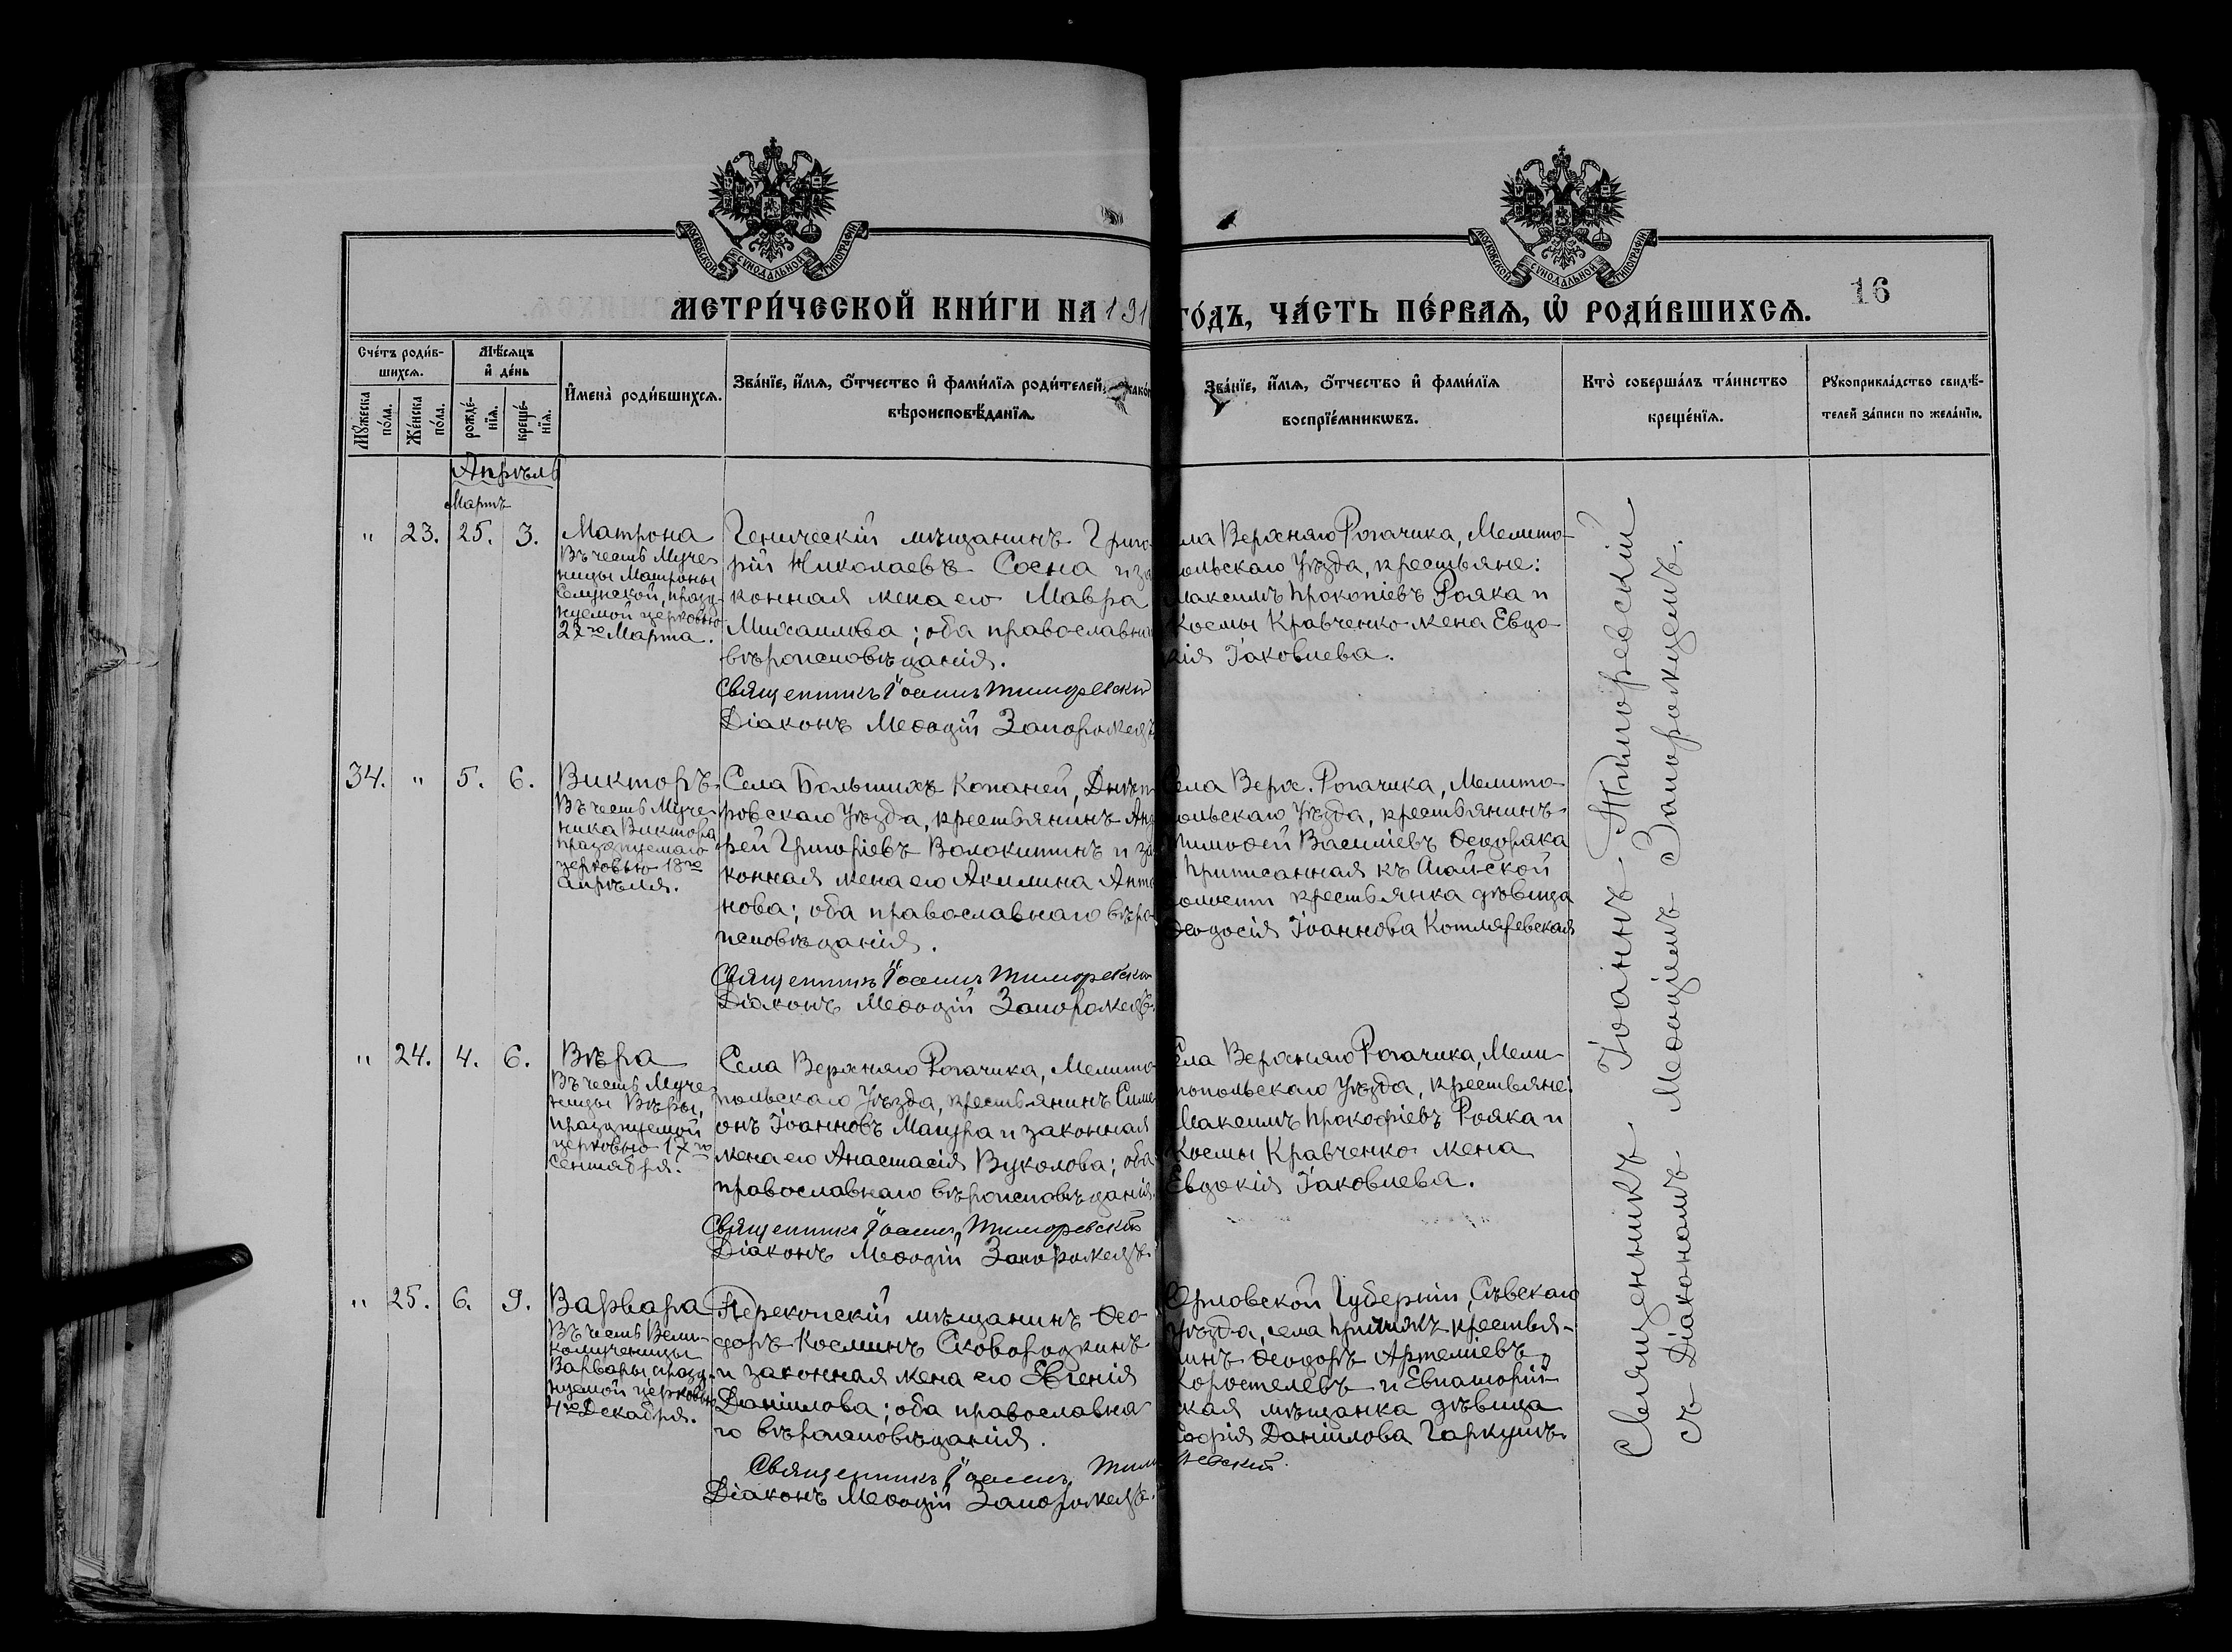 МОСКОВСКОЙ СѴНОДАЛЬНОЙ ТИПОГРАФІИ
МОСКОВСКОЙ СѴНОДАЛЬНОЙ ТИПОГРАФІИ
16
МЕТРИ́ЧЕСКОЙ КНИ́ГИ НА 191
ГО́ДЪ, ЧА́СТЬ ПЕ́РВАЯ, Ѡ҆ РОДИ́ВШИХСЯ.
Сче́тъ роди́в-
шихся.
Мꙋ́жеска
по́ла.
Же́нска
по́ла.
Мѣ́сяцъ
и҆ де́нь
рожде́-
нїя.
креще́-
нїя.
И҆мена̀ роди́вшихся.
Зва́нїе, и҆́мя, ѻ҆́тчество и҆ фами́лїя роди́телей,
вѣроисповѣ́данїя.
Зва́нїе, и҆́мя, ѻ҆́тчество и҆ фами́лїя
воспрїе́мникѡвъ.
Кто̀ соверша́лъ та́инство
креще́нїя.
Рꙋкоприкла́дство свидѣ́-
телей за́писи по жела́нїю.
Апрѣль
Мартъ
" 23. 25. 3.
Матрона
Въ честь Муче-
ницы Матроны
Селунской, празд-
нуемой церковью
27го Марта.
Геническій мѣщанинъ Григо-
рій Николаевъ Сосна и за
конная жена его Мавра
Михаилова; оба православна
вѣроисповѣданія.
Священникъ Іоаннъ Тиморевскій
Діаконъ Меѳодій Запорожецъ
ла Верхняго Рогачика, Мелито-
ольскаго Уѣзда, крестьяне:
Максимъ Прокопіевъ Рояка и
Космы Кравченко жена Евдо-
кія Іаковлева.
34. " 5. 6.
Викторъ
Въ честь Муче-
ника Виктора
празднуемаго
церковью 18го
апрѣля.
Села Большихъ Копаней, Днѣп
ровскаго Уѣзда, крестьянинъ Анд
рей Григоріевъ Волокитинъ и за
конная жена его Акилина Анто
нова; оба православнаго вѣро
исповѣданія.
Священникъ Іоаннъ Тиморевскій
Діаконъ Меѳодій Запорожецъ.
Села Верх. Рогачика, Мелито-
польскаго Уѣзда, крестьянинъ
Тимоѳей Василіевъ Ѳедоряка
Приписанная къ Агайской
волости крестьянка дѣвица
Ѳеодосія Іоаннова Котляревская
" 24. 4. 6.
Вѣра
Въ честь Муче-
ницы Вѣры,
празднуемой
церковью 17го
Сентября.
Села Верхняго Рогачика, Мелито
польскаго Уѣзда, крестьянинъ Симе
онъ Іоанновъ Мацура и законная
жена его Анастасія Вуколова; оба
православнаго вѣроисповѣданія.
Священникъ Іоаннъ Тиморевскій
Діаконъ Меѳодій Запорожецъ.
Села Верхняго Рогачика, Мели-
топольскаго Уѣзда, крестьяне:
Максимъ Прокофіевъ Рояка и
Космы Кравченко жена
Евдокія Іаковлева.
" 25. 6. 9.
Варвара
Въ честь Вели-
комученицы
Варвары, празд-
нуемой церковью
4го Декабря.
Перекопскій мѣщанинъ Ѳео-
доръ Косминъ Сковородкинъ
и законная жена его Евгенія
Даніилова; оба православна-
го вѣроисповѣданія.
Священникъ Іоаннъ Тиморевскій.
Діаконъ Меѳодій Запорожецъ.
Орловской Губерніи, Сѣвскаго
Уѣзда, села крестья-
нинъ Ѳеодоръ Артеміевъ
Коростелевъ и Евпаторій-
ская мѣщанка дѣвица
Софія Даніилова
Священникъ Іоаннъ Тиморевскій
съ Діакономъ Меѳодіемъ Запорожцемъ.